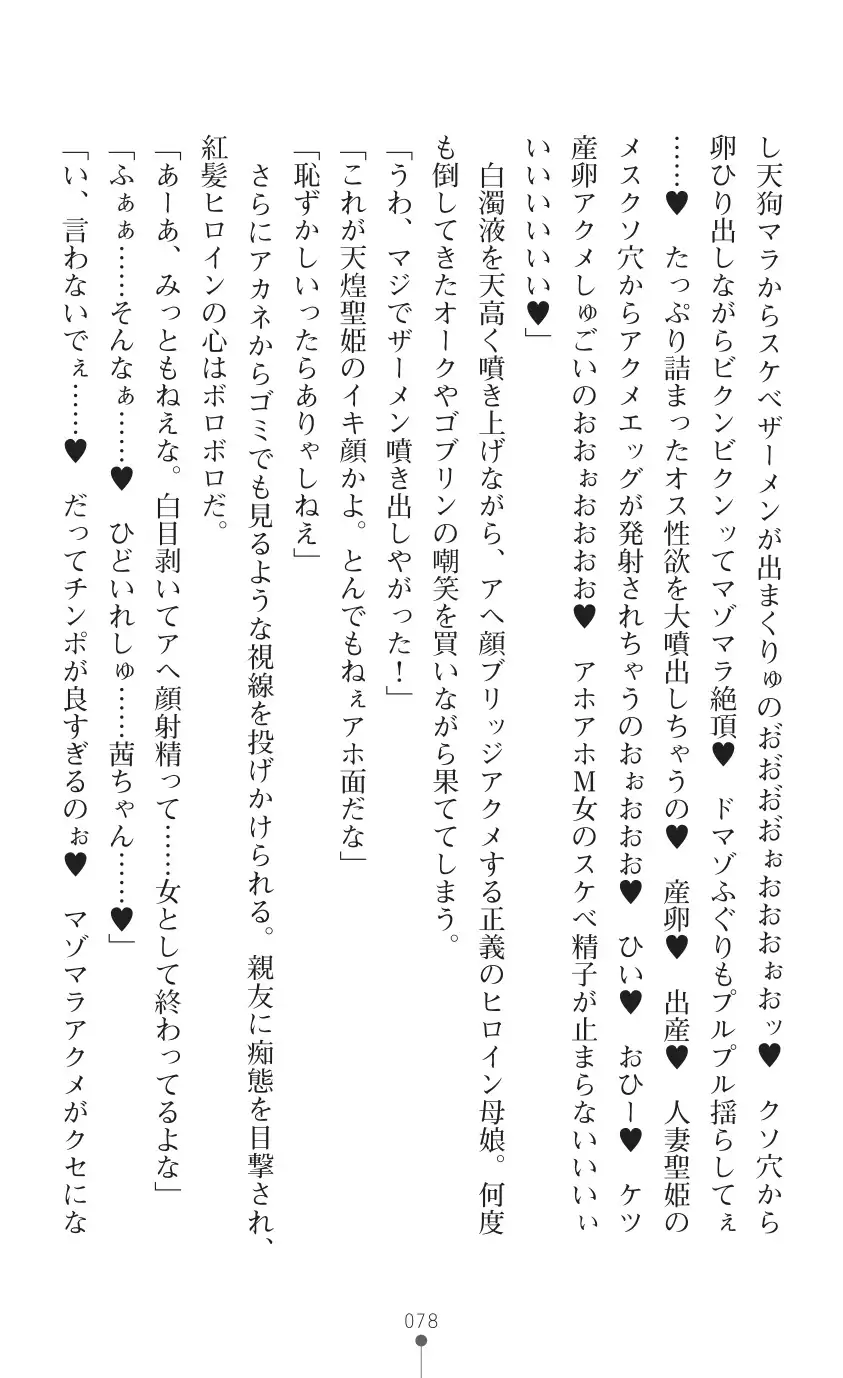 し天狗マラからスケベザーメンが出まくりゅのお゙お゙お゙お゙ぉおおおぉおッ♥　クソ穴から
卵ひり出しながらビクンビクンッてマゾマラ絶頂♥　ドマゾふぐりもプルプル揺らしてぇ
……♥　たっぷり詰まったオス性欲を大噴出しちゃうの♥　産卵♥　出産♥　人妻聖姫の
メスクソ穴からアクメエッグが発射されちゃうのおぉおおお♥　ひい♥　おひー♥　ケツ
産卵アクメしゅごいのおおぉおおおお♥　アホアホＭ女のスケベ精子が止まらないいいいぃ
いいいいいい♥」
　白濁液を天高く噴き上げながら、アヘ顔ブリッジアクメする正義のヒロイン母娘。何度
も倒してきたオークやゴブリンの嘲笑を買いながら果ててしまう。
「うわ、マジでザーメン噴き出しやがった！」
「これが天煌聖姫のイキ顔かよ。とんでもねぇアホ面だな」
「恥ずかしいったらありゃしねえ」
　さらにアカネからゴミでも見るような視線を投げかけられる。親友に痴態を目撃され、
紅髪ヒロインの心はボロボロだ。
「あーあ、みっともねえな。白目剥いてアヘ顔射精って……女として終わってるよな」
「ふぁぁ……そんなぁ……♥　ひどいれしゅ……茜ちゃん……♥」
「い、言わないでぇ……♥　だってチンポが良すぎるのぉ♥　マゾマラアクメがクセにな
078